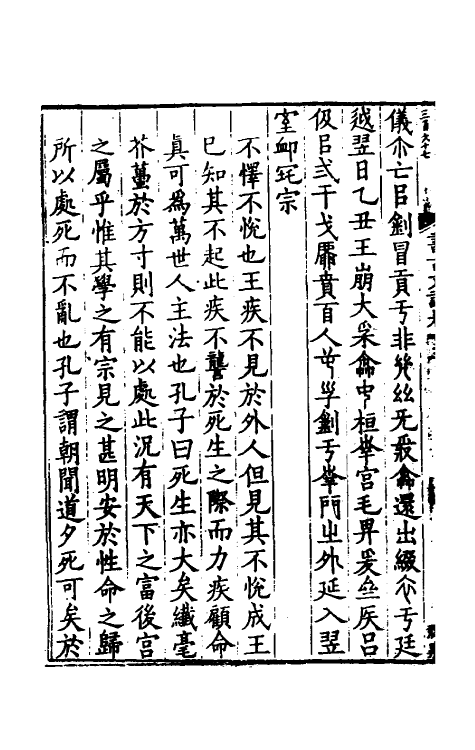 儀尒亡㠯釗冒貢亏非㡬丝旡𠬪龠還出綴衣亏廷
越翌日乙丑王崩大采龠中桓𡴖宫毛畀爰亝矦吕
伋㠯弍干戈虝賁百人屰孚釗亏𡴖門㞢外延入翌
室卹宅宗
不懌不悅也王疾不見於外人但見其不悅成王
已知其不起此疾不讋於死生之際而力疾顧命
真可為萬世人主法也孔子曰死生亦大矣纎毫
芥蔕於方寸則不能以處此況有天下之富後宮
之屬乎惟其學之有宗見之甚明安於性命之歸
所以處死而不亂也孔子謂朝聞道夕死可矣於